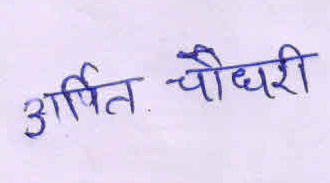 अर्पित चौधरी